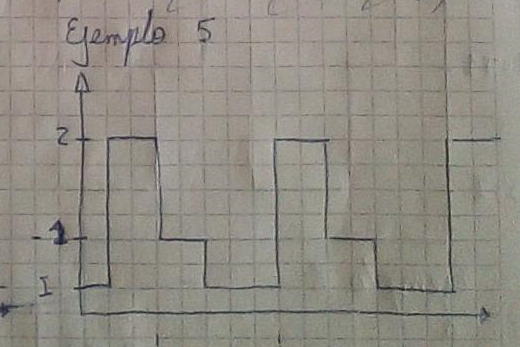 Ejemplo 5
2
-1
I